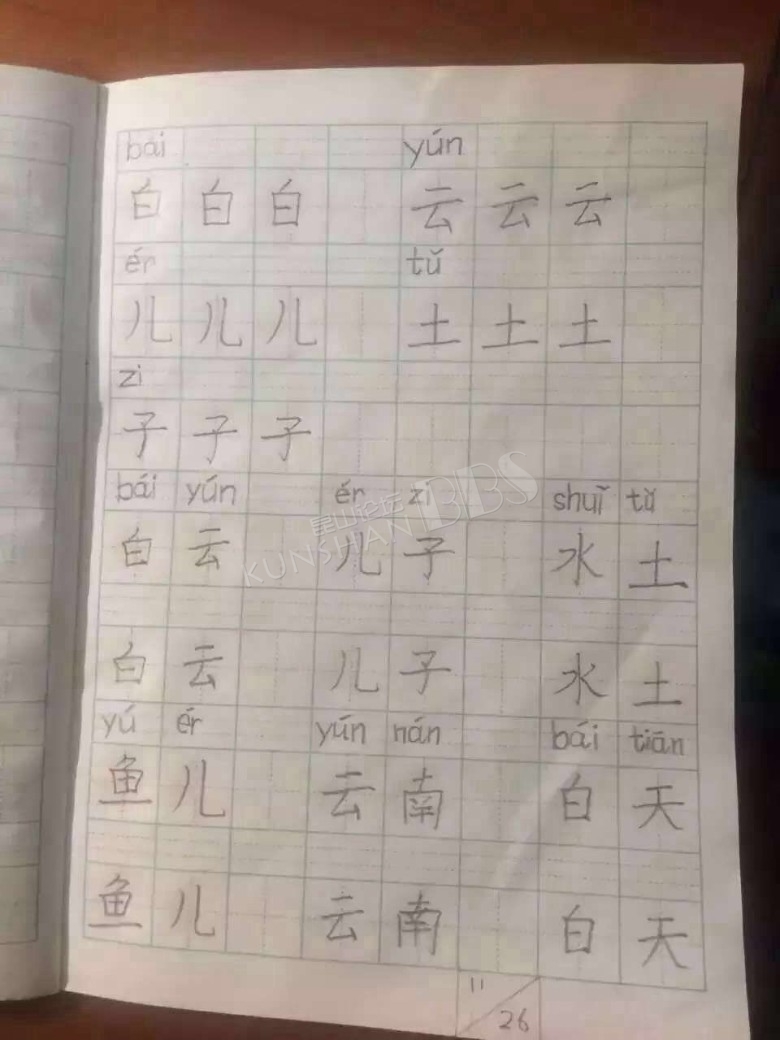 bái yún
白 白 白 云 云 云
ér tǔ
儿 儿 儿 土 土 土
zi
子 子 子
bái yún ér zi shuǐ tǔ
白 云 儿 子 水 土
白 云 儿 子 水 土
yú ér yún nán bái tiān
鱼 儿 云 南 白 天
鱼 儿 云 南 白 天
11/26
昆山论坛 BBS
KUNSHAN